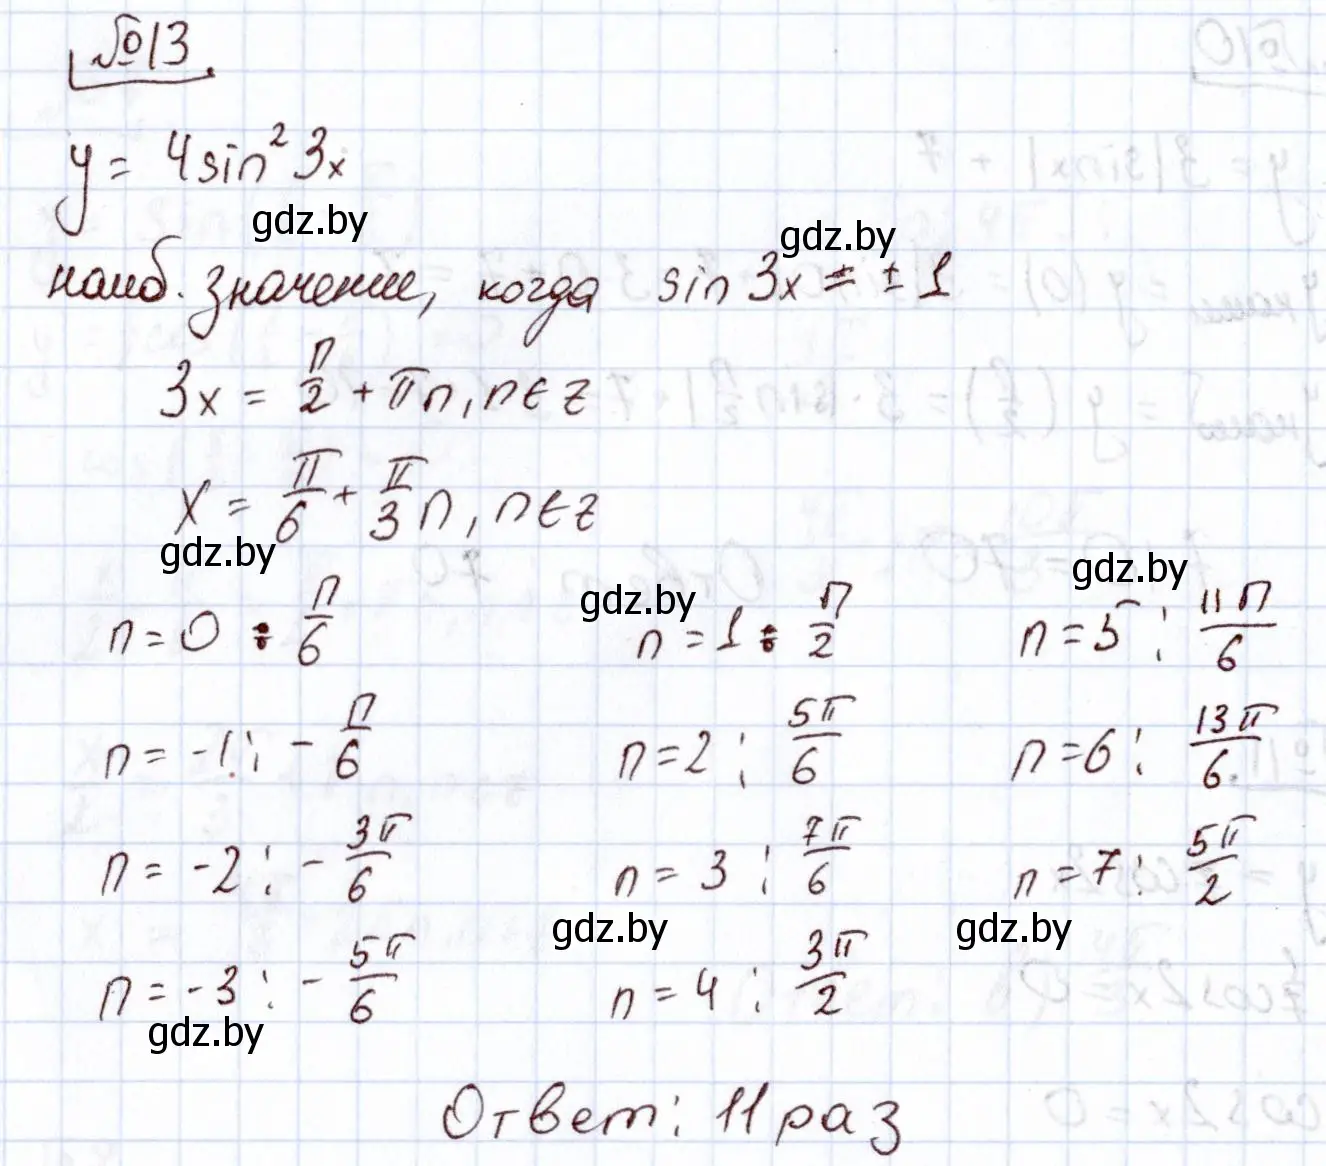 №13
y = 4sin² 3x
gdz.by
gdz.by
наиб. значение, когда sin 3x = ± 1
3x = π/2 + πn, n ∈ z
x = π/6 + π/3 n, n ∈ z
gdz.by
gdz.by
gdz.by
n = 0 : π/6 n = 1 : π/2 n = 5 : 11π/6
n = -1 : - π/6 n = 2 : 5π/6 n = 6 : 13π/6
n = -2 : - 3π/6 n = 3 : 7π/6 n = 7 : 5π/2
gdz.by
gdz.by
n = -3 : - 5π/6 n = 4 : 3π/2
gdz.by
Ответ: 11 раз